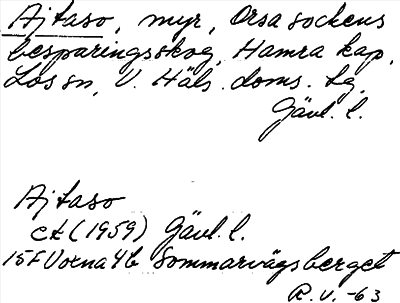 Ajtaso, myr, Orsa sockens
besparingsskog, Hamra kap.
Los sn, V. Häls. doms. lg
Gävl. l.
Ajtaso
ek (1959) Gävl. l.
15F Voxna 4b Sommarvägsberget
R.V. -63